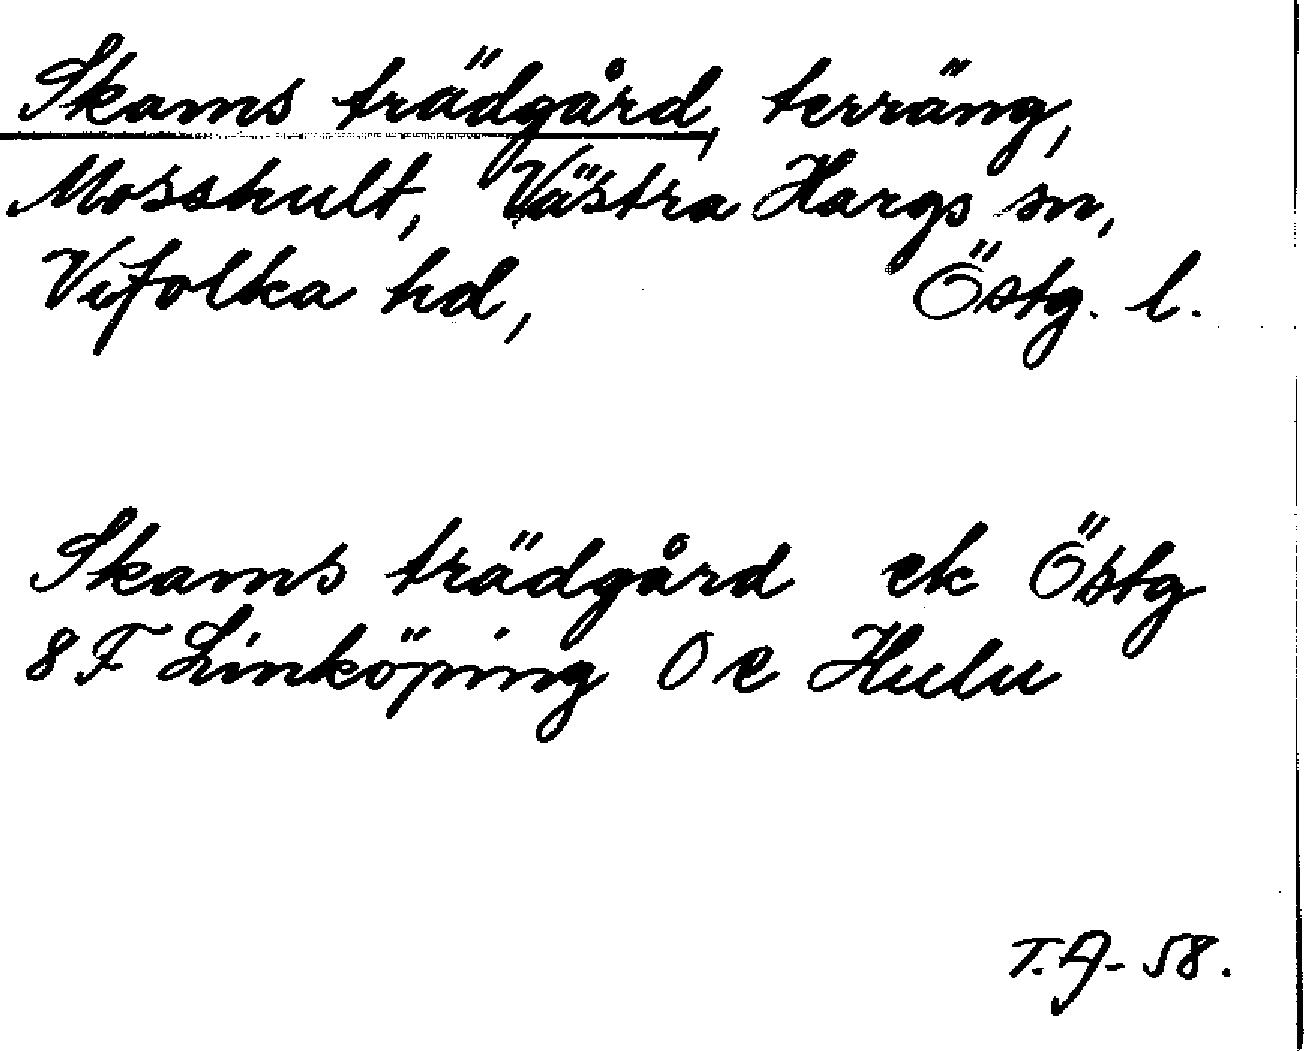 Skams trädgård, terräng,
Mosshult, Västra Hargs sn,
Vifolka hd, Östg. l.
Skams trädgård ek Östg
8 F Linköping O e Hulu
T. A- 58.